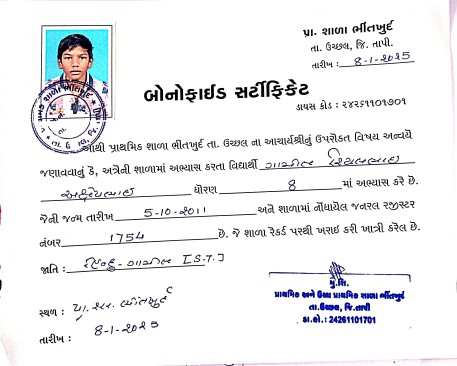 પ્રા. શાળા ભીંતખુર્દ
તા. ઉચ્છલ, જિ. તાપી.
તારીખ : 8-1-2025
બોનોફાઈડ સર્ટીફિકેટ
ડાયસ કોડ : ૨૪૨૬૧૧૦૧૭૦૧
આથી પ્રાથમિક શાળા ભીતખુર્દ તા. ઉચ્છલ ના આચાર્યશ્રીનું ઉપરોકત વિષય અન્વયે
જણાવવાનું કે, અત્રેની શાળામાં અભ્યાસ કરતા વિદ્યાર્થી ગામીત
ધોરણ 8 માં અભ્યાસ કરે છે.
જેની જન્મ તારીખ 5-10-2011 અને શાળામાં નોંધાયેલ જનરલ રજીસ્ટર
નંબર 1754 છે. જે શાળા રેકર્ડ પરથી ખરાઇ કરી ખાત્રી કરેલ છે.
જાતિ : હિન્દુ-ગામીત [S.T.]
મુ.શિ.
પ્રાથમિક અને ઉચ્ચ પ્રાથમિક શાળા ભીંતખુર્દ
તા.ઉચ્છલ, જિ.તાપી
ડા.કો.: 24261101701
સ્થળ : પ્રા. શાળા. ભીંતખુર્દ
તારીખ : 8-1-2025